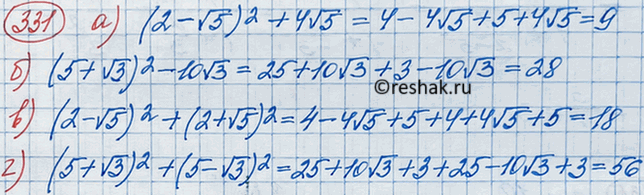 331 а) (2-√5)² + 4√5 = 4 - 4√5 + 5 + 4√5 = 9
б) (5+√3)² - 10√3 = 25 + 10√3 + 3 - 10√3 = 28
©reshak.ru
в) (2-√5)² + (2+√5)² = 4 - 4√5 + 5 + 4 + 4√5 + 5 = 18
г) (5+√3)² + (5-√3)² = 25 + 10√3 + 3 + 25 - 10√3 + 3 = 56